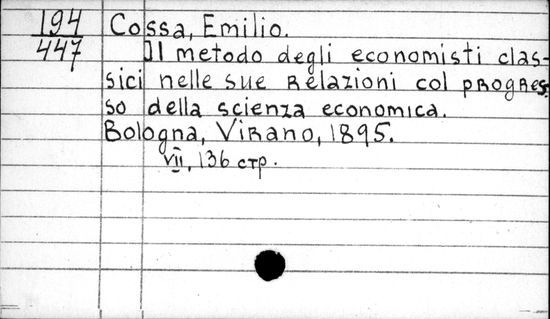 194 Cossa, Emilio.
447 Il metodo degli economisti clas-
sici nelle sue relazioni col progres-
so della scienza economica.
Bologna, Virano, 1895.
VII, 136 стр.